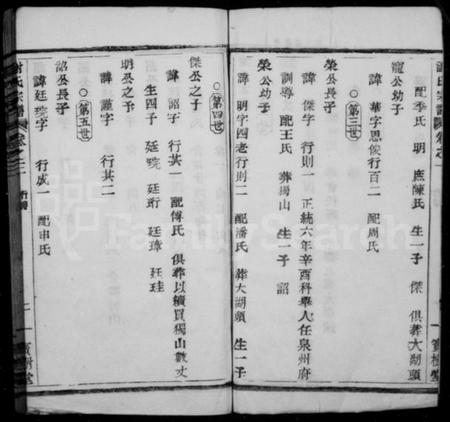 謝氏宗譜 卷之一
配李氏 明 庶陳氏 生一子 傑 俱葬大湖頭
寵公幼子
諱 華字思俊行百二 配周氏
第三世
榮公長子
諱 傑字 行則一 正統六年辛酉科舉人任泉州府
訓導 配王氏 葬揚山 生一子 詔
榮公幼子
諱 明字四老行則二 配潘氏 葬大湖頭 生一子
寶樹堂
第四世
傑公之子
諱 詔字 行其一 配傅氏 俱葬以續買獨山數丈
生四子 廷琓 廷珩 廷璋 廷珪
明公之子
諱 讓字 行其二
第五世
詔公長子
諱 廷琓字 行成一 配申氏
謝氏宗譜 卷之二
寶樹堂
FamilySearch